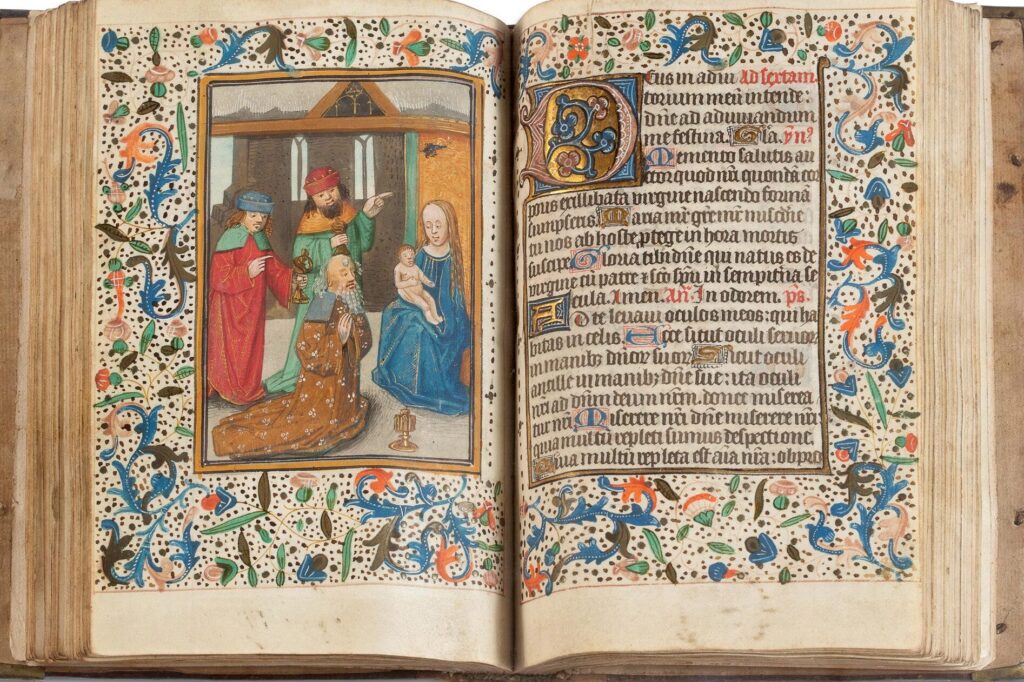 Deus in adiu Ad sextam
torium meū intende:
dn̄e ad adiuuandum
me festina. Gl̄a. ȳn⁹
Memento salutis au
ctor quod nr̄i quondā cor
poris ex illibata virgine nascendo formam
sumpseris. Maria mr̄ gr̄e mr̄ mīscd̄ie
tu nos ab hoste ꝓtege in hora mortis
suscipe. Gloria tibi dn̄e qui natus es de
virgine cū patre ⁊ sc̄o sp̄u in sempit̄na se
cula. Amen. An̄. In odorem. p̄s.
Ad te leuaui oculos meos: qui ha
bitas in celis. Ecce sicut oculi seruor
in manibꝫ dn̄or suor Sicut oculi
ancille in manibꝫ dn̄e sue: ita oculi
nr̄i ad dn̄m deum nr̄m. donec miserea
tur nr̄i Miserere nr̄i dn̄e miserere nr̄i
quia multū repleti sumus despectione
Quia multū repleta est aīa nr̄a: obpro